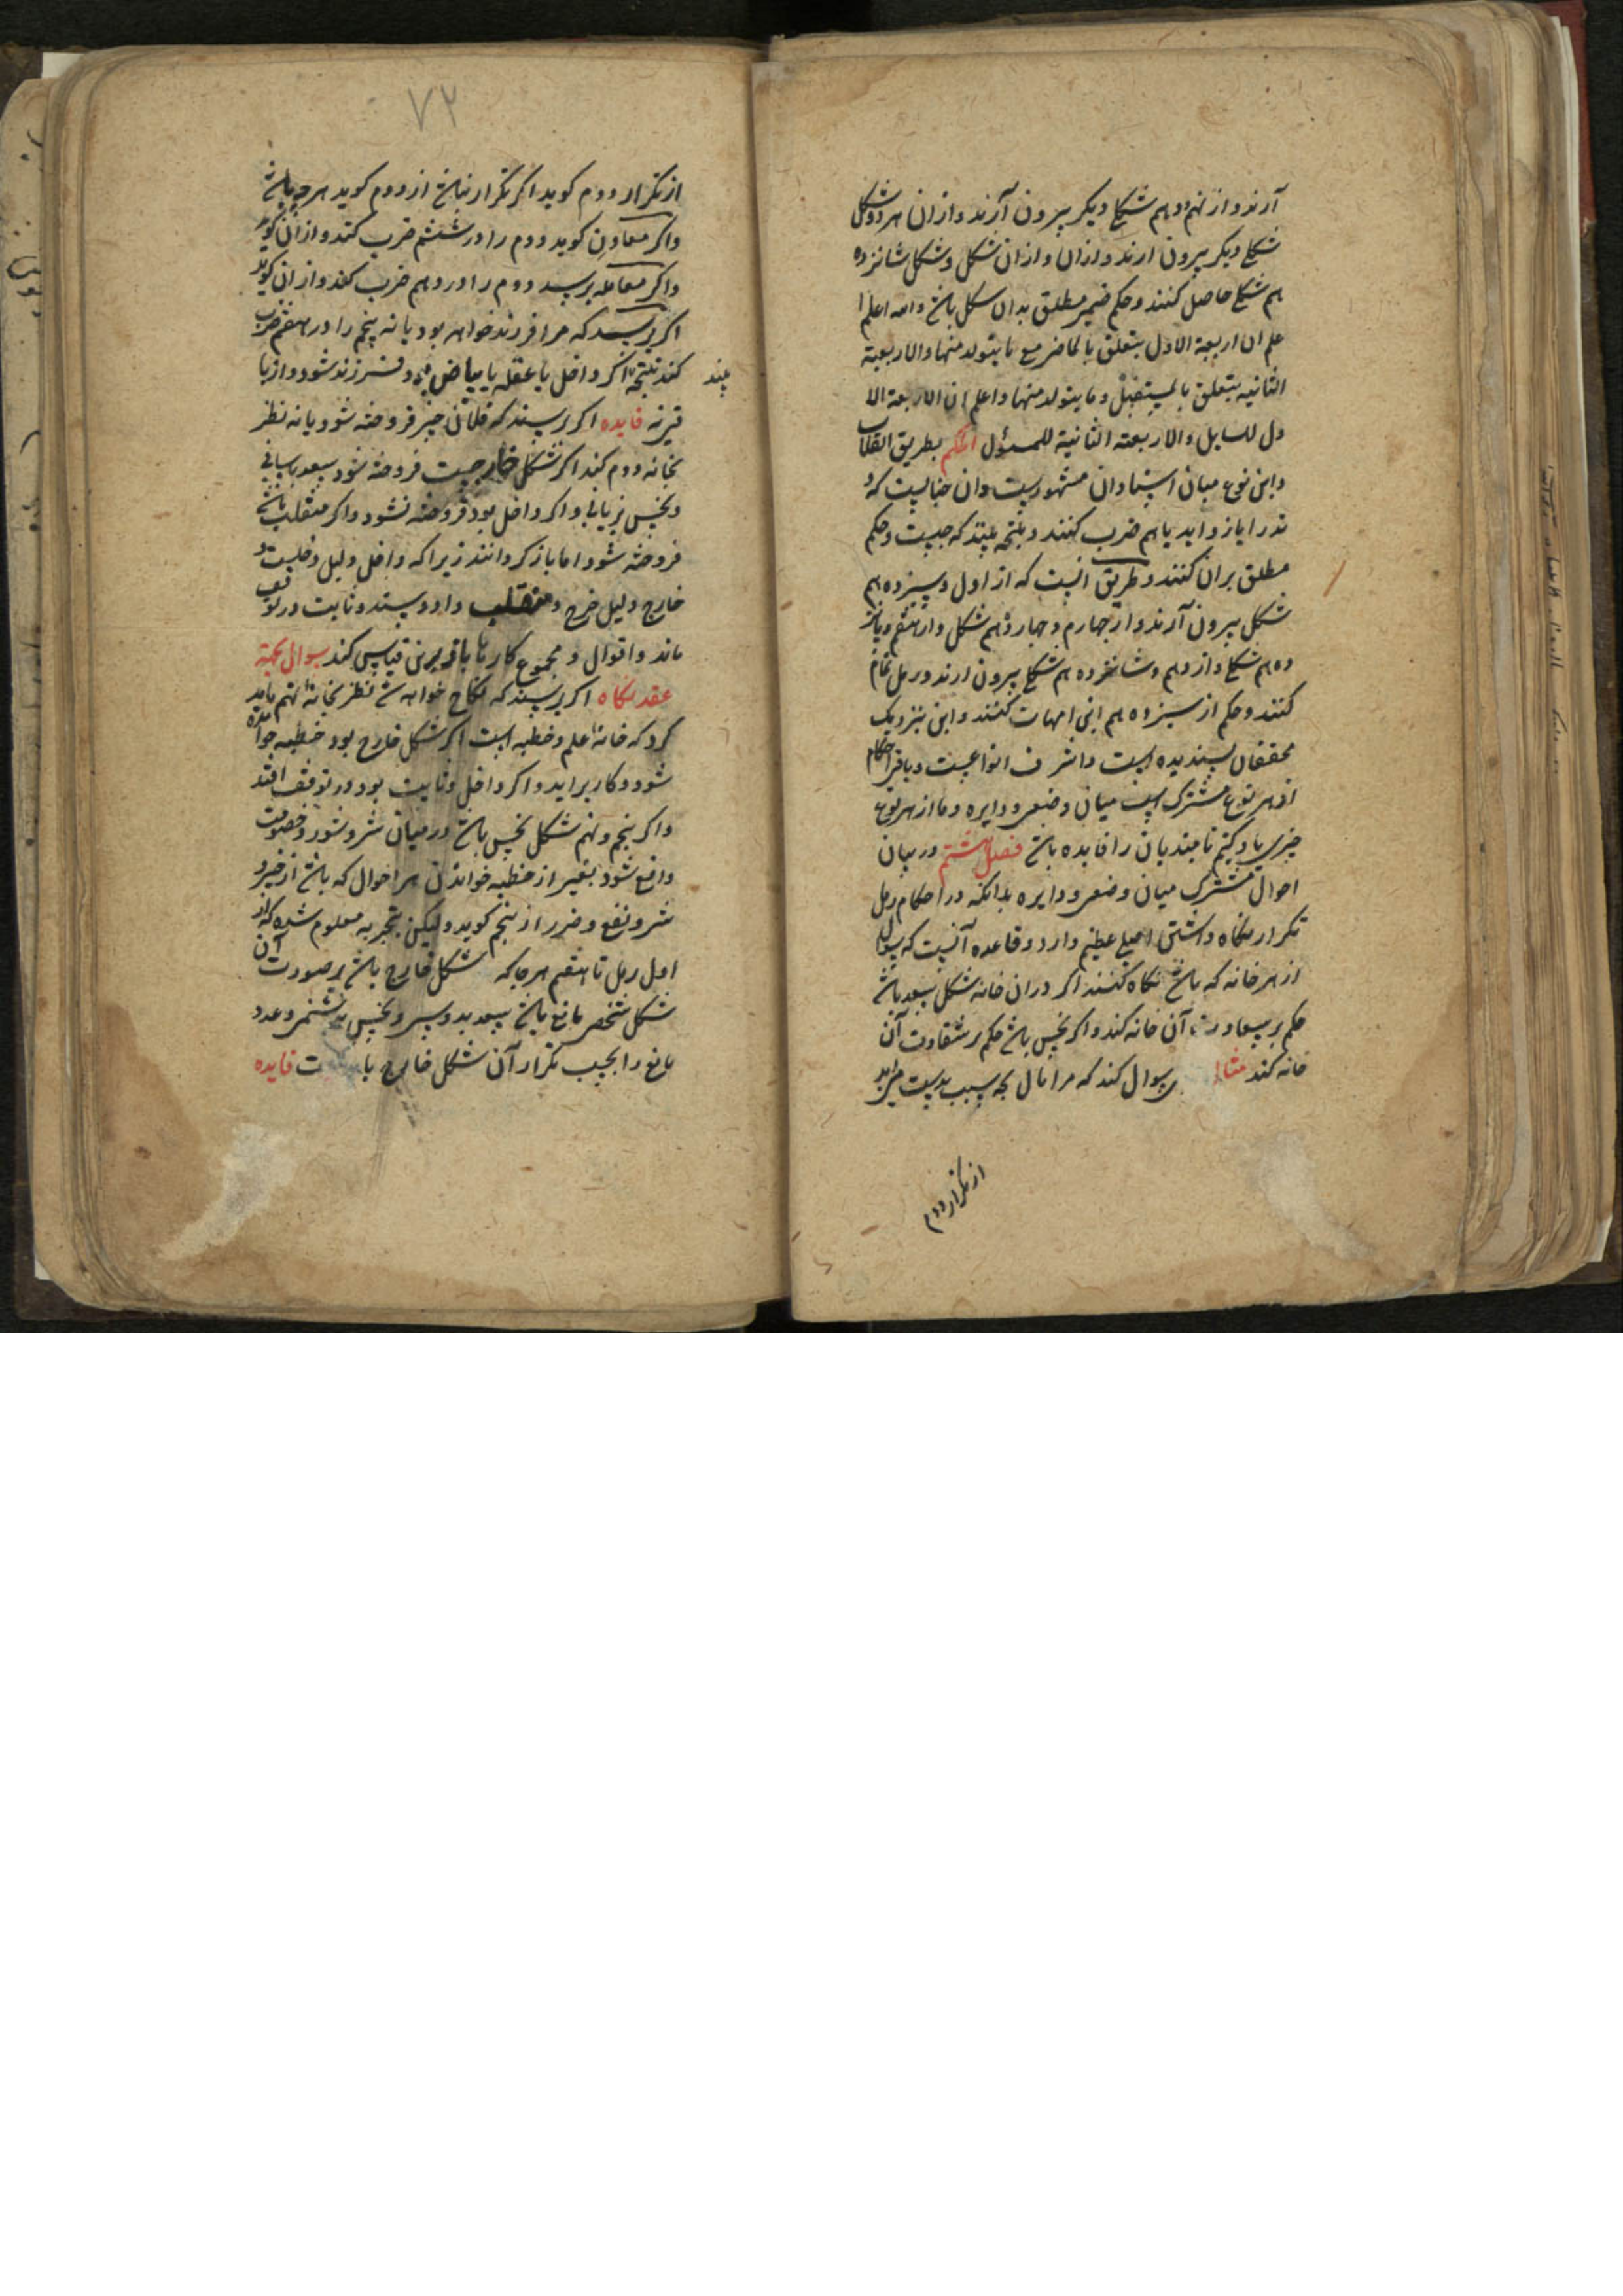 آرند و از نهم و دهم شکلی دیگر بیرون آرند و ازان هر دو شکل
شکلی دیگر بیرون ارند و ازان و ازان شکل و شکل شانزده
هم شکلی حاصل کنند و حکم ضمیر مطلق بدان شکل باشد و الله اعلم ا
علم ان اربعة الاول يتعلق بالماضی مع ما یتولد منها و الاربعة
الثانیه یتعلق بالمستقبل و ما یتولد منها و اعلم ان الاربعة الا
ول للسایل و الاربعة الثانیة للمسؤل الحکم بطریق انقلاب
و این نوع میان استادان مشهورست و ان چنانست که و
تد را با زواید با هم ضرب کنند و نتیجه بینند که چیست و حکم
مطلق بران کنند و طریق انست که از اول و سیزده هم
شکل بیرون آرند و از چهارم و چهاردهم شکل و از هفتم و پانز
ده هم شکلی و از دهم و شانزده هم شکلی بیرون ارند و رمل تمام
کنند و حکم از سیزده هم این امهات کنند و این بنزدیک
محققان پسندیده است و اشرف انواعست و باقی احکام
از هر نوع مشترک است میان وضعی و دایره و ما از هر نوع
چیزی یاد کنیم تا مبتدیان را فایده باشد فصل هشتم در بیان
احوال مشترک میان وضعی و دایره بدانکه در احکام رمل
تکرار نگاه داشتن اصلی عظیم دارد و قاعده آنست که سوال
از هر خانه که باشد نگاه کنند اگر دران خانه شکل سعد باشد
حکم بر سعادت آن خانه کند و اگر نحس باشد حکم بر شقاوت آن
خانه کند مثلا سوال کند که مرا مال بچه سبب بدست می اید
از تکرار دوم
۷۲
از تکرار دوم کوید اکر تکرار نباشد از دوم کوید هر چه باشد
واکر معاون کوید دوم را در ششم ضرب کند و ازان کوید
واکر معامله پرسد دوم را در دهم ضرب کند و از ان کوید
اکر پرسد که مرا فرزند خواهد بود یا نه پنجم را در هفتم ضرب
کند نتیجه اکر داخل یا عقله یا بیاض فرزند شود و از با
قی نه فایده اکر پرسند که فلان چیز فروخته شود یا نه نظر
بخانه دوم کند اکر شکل خارجست فروخته شود سعد باسانی
و نحس و اکر داخل بود فروخته نشود واکر منقلب باشد
فروخته شود اما باز کردانند زیرا که داخل دلیل دخلست و
خارج دلیل خرج و منقلب داد و ستد و ثابت در توقف
ماند و اقوال و مجموع کارها باقی برین قیاس کند سوال بجهة
عقد نکاه اکر پرسند که نکاح خواهد شد نظر بخانه نهم باید
کرد که خانه علم و خطبه است اکر شکل خارج بود خطبه خوانده
شود و کار براید و اکر داخل و ثابت بود در توقف افتد
واکر پنجم و نهم شکل نحس باشد درمیان شر و شور و خصومت
واقع شود بغیر از خطبه خواندن هر احوال که باشد از خیر و
شر و نفع و ضرر از پنجم کوید ولیکن بتجربه معلوم شده که از
اول رمل تا هفتم هرجا که شکل خارج باشد بر صورت آن
شکل شخص مانع باشد سعد بدوستی و نحس بدشمنی و عدد
مانع را بحسب تکرار آن شکل خارج فایده